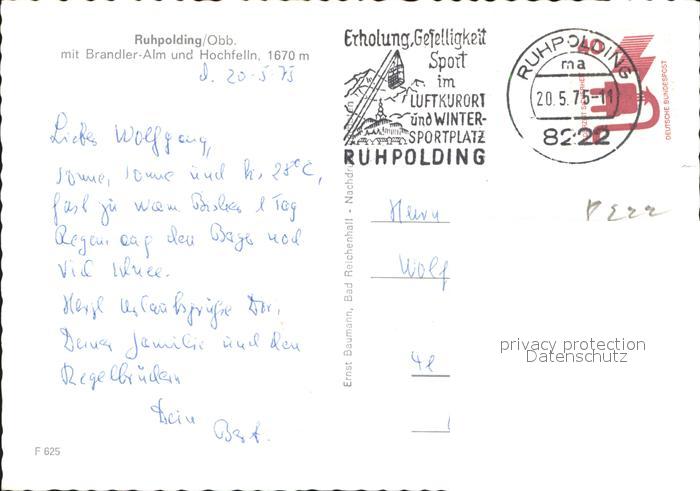 Ruhpolding/Obb.
mit Brandler-Alm und Hochfelln, 1670 m
d. 20.5.75
Lieber Wolfgang,
Sonne, Sonne und bis 28°C,
fast zu warm Bisher 1 Tag
Regen auf den Berge noch
viel Schnee.
Herzl Urlaubsgrüße Dir,
Deiner Familie und den
Kegelbrüdern
Dein
F 625
Ernst Baumann, Bad Reichenhall - Nachdr
Erholung, Geselligkeit
Sport
im
LUFTKURORT
und WINTER-
SPORTPLATZ
RUHPOLDING
RUHPOLDING
ma
20.5.75-11
8222
DEUTSCHE BUNDESPOST
Herrn
Wolf
privacy protection
Datenschutz